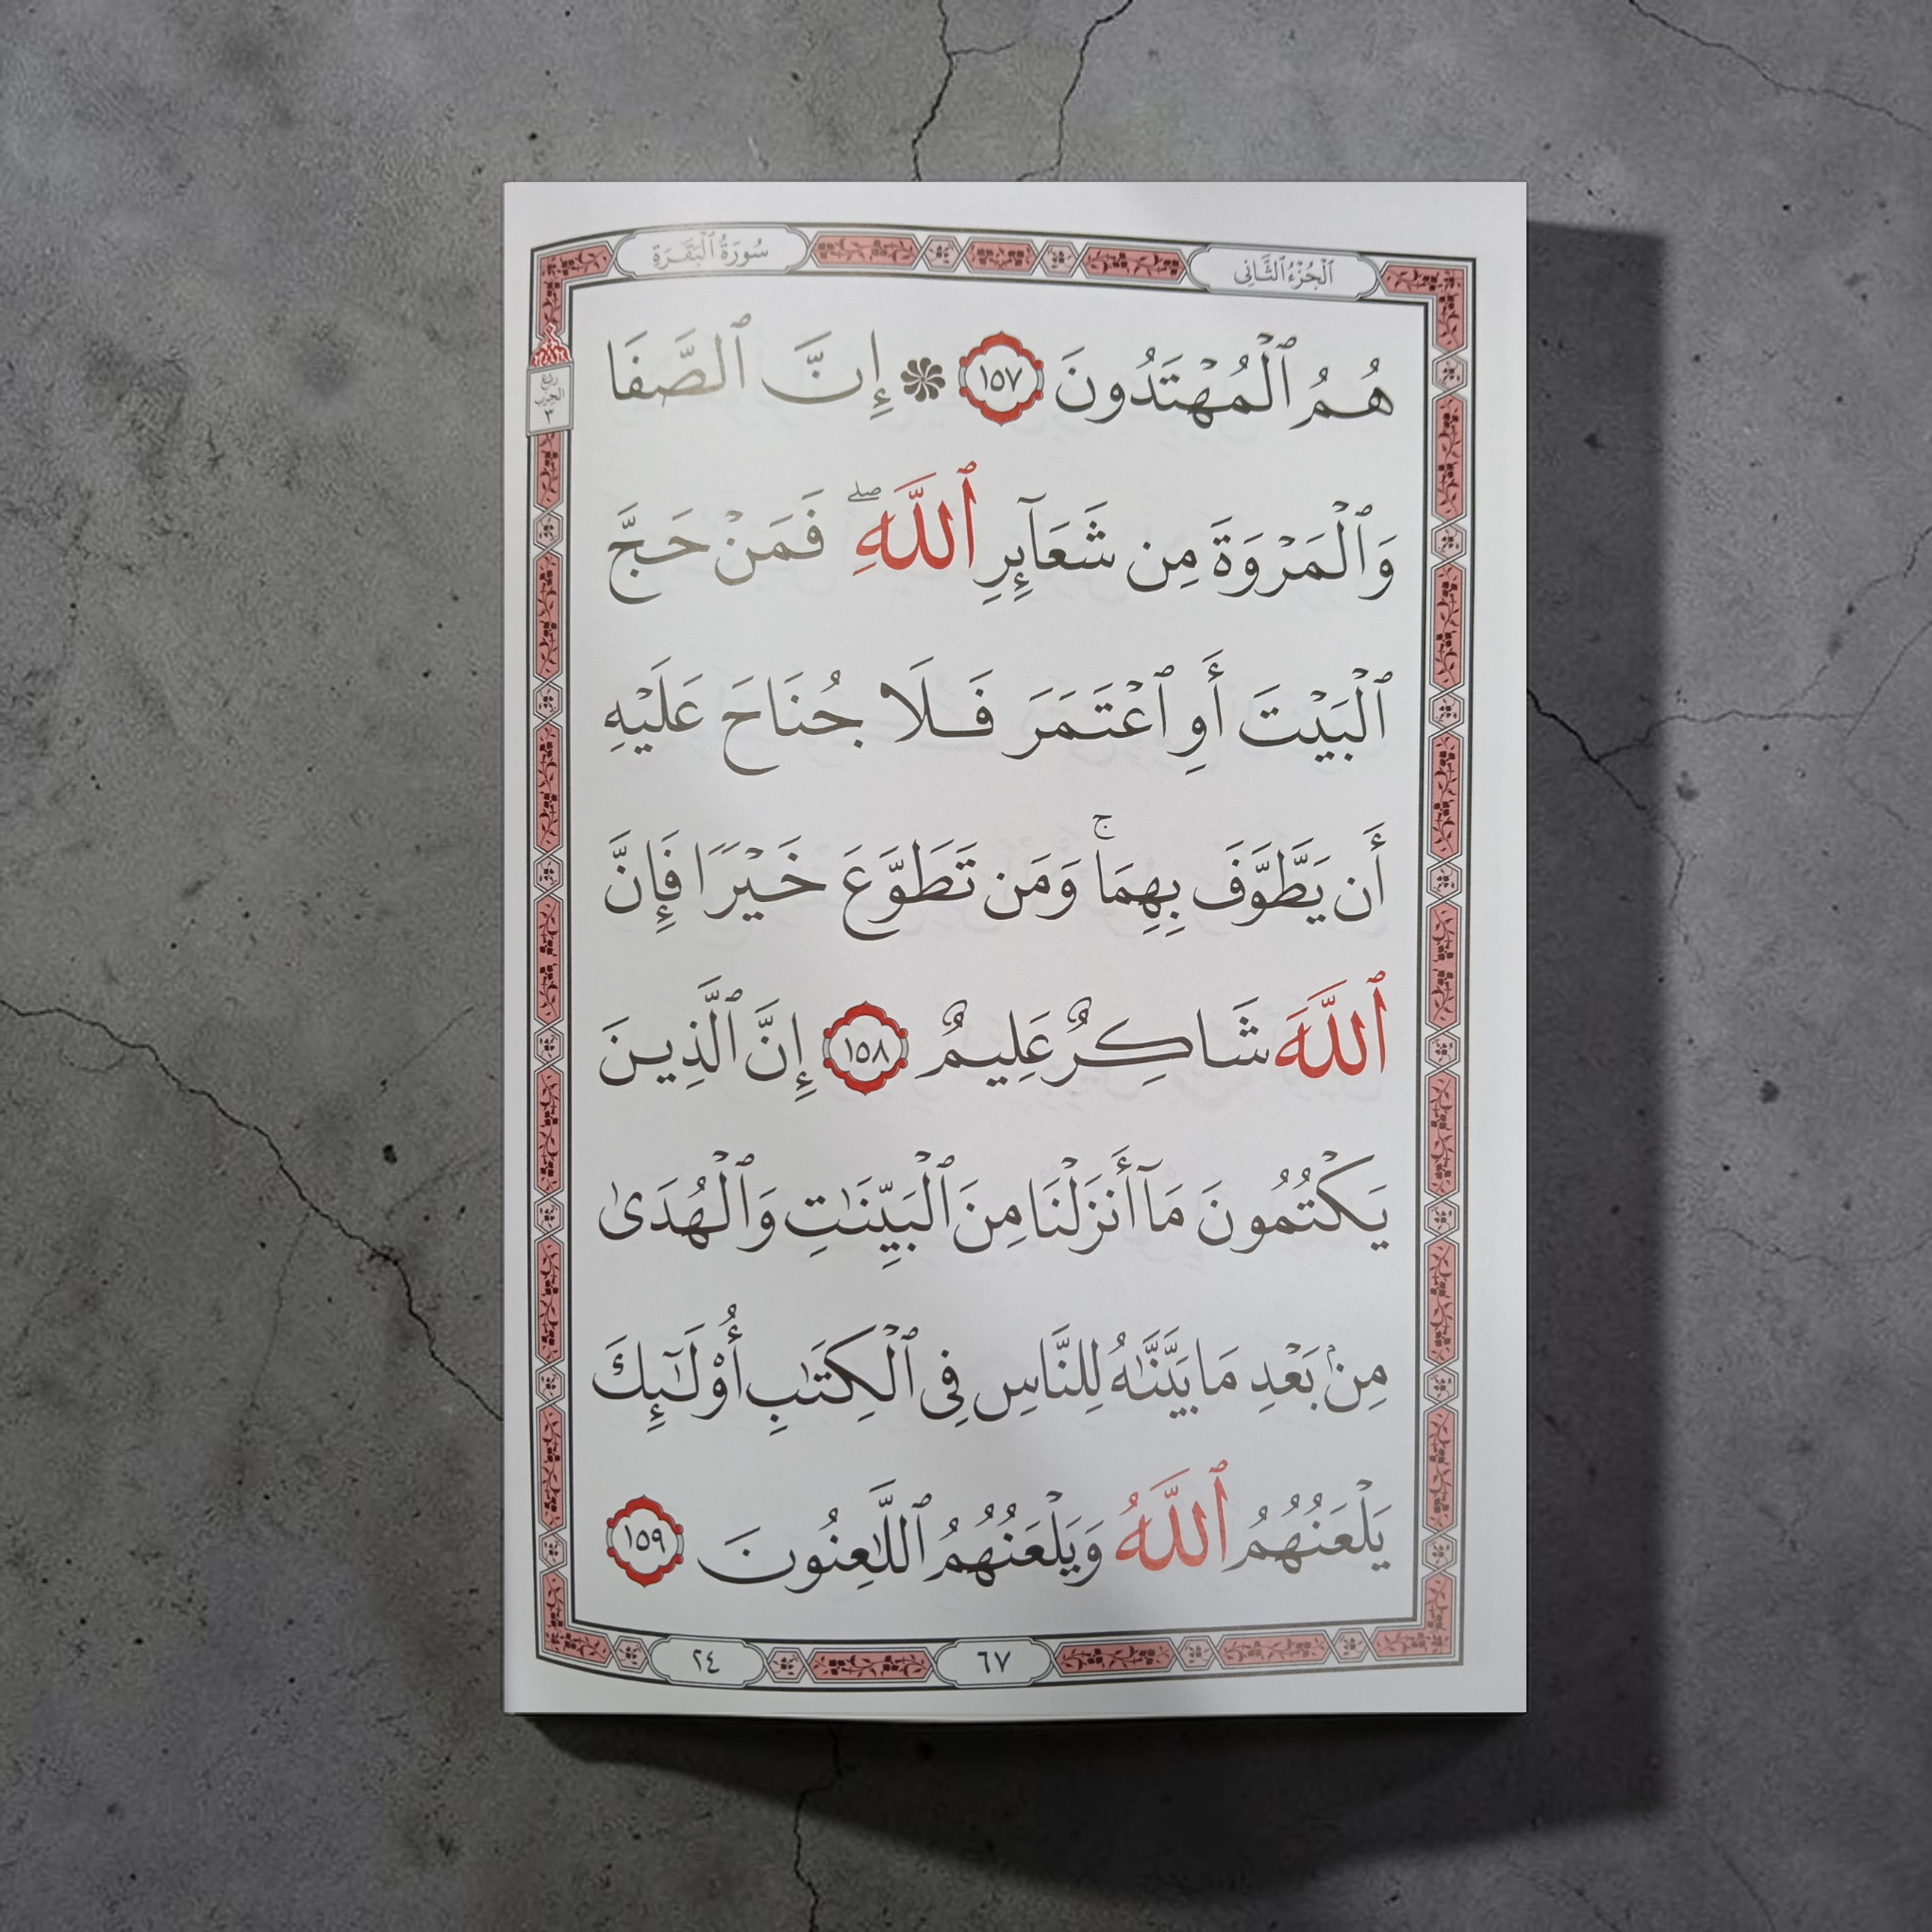 ٱلْجُزْءُ ٱلثَّانِى
سُورَةُ ٱلْبَقَرَةِ
هُمُ ٱلْمُهْتَدُونَ ١٥٧ ۞ إِنَّ ٱلصَّفَا
رُبع
الحزب
٣
وَٱلْمَرْوَةَ مِن شَعَآئِرِ ٱللَّهِۖ فَمَنْ حَجَّ
ٱلْبَيْتَ أَوِ ٱعْتَمَرَ فَلَا جُنَاحَ عَلَيْهِ
أَن يَطَّوَّفَ بِهِمَاۚ وَمَن تَطَوَّعَ خَيْرًا فَإِنَّ
ٱللَّهَ شَاكِرٌ عَلِيمٌ ١٥٨ إِنَّ ٱلَّذِينَ
يَكْتُمُونَ مَآ أَنزَلْنَا مِنَ ٱلْبَيِّنَٰتِ وَٱلْهُدَىٰ
مِنۢ بَعْدِ مَا بَيَّنَّٰهُ لِلنَّاسِ فِى ٱلْكِتَٰبِ أُو۟لَٰٓئِكَ
يَلْعَنُهُمُ ٱللَّهُ وَيَلْعَنُهُمُ ٱللَّٰعِنُونَ ١٥٩
٦٧
٢٤